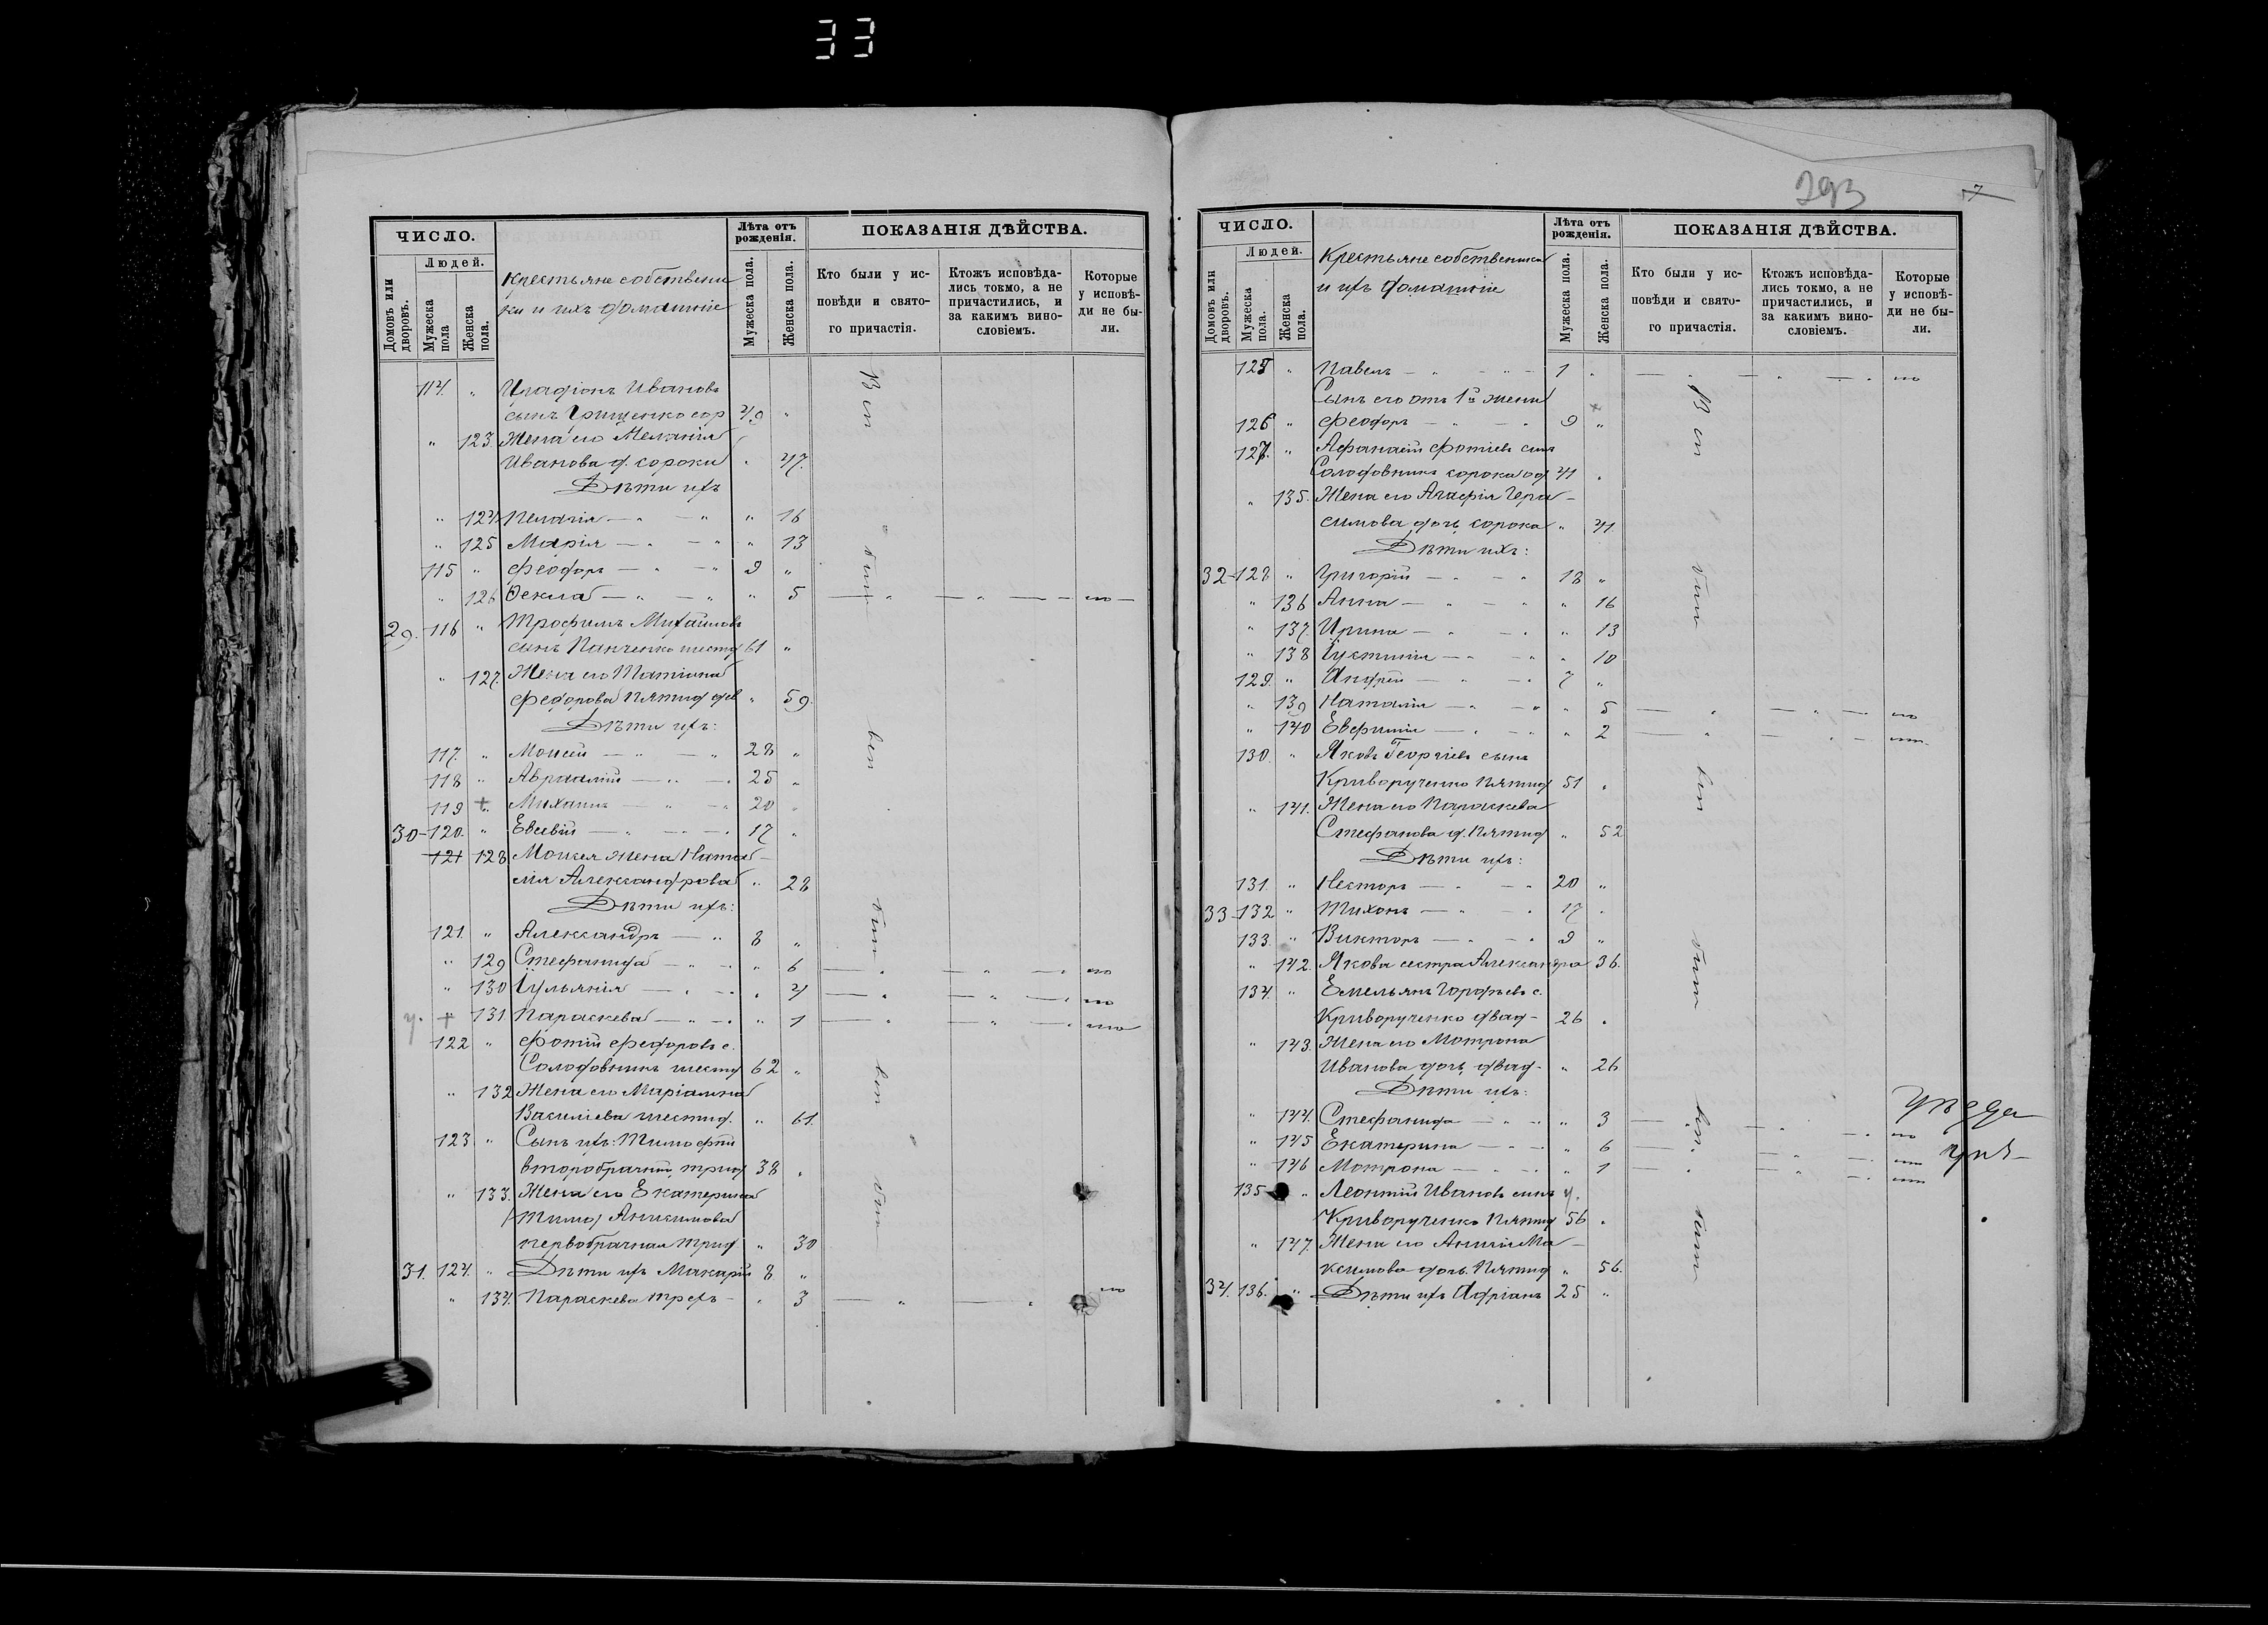 33
ЧИСЛО.
Людей.
Домовъ или дворовъ.
Мужеска пола
Женска пола.
Крестьяне собственни
ки и ихъ домашніе
Лѣта отъ рожденія.
Мужеска пола.
Женска пола.
ПОКАЗАНІЯ ДѢЙСТВА.
Кто были у ис-
повѣди и свято-
го причастія.
Ктожъ исповѣда-
лись токмо, а не
причастились, и
за какимъ вино-
словіемъ.
Которые
у исповѣ-
ди не бы-
ли.
114. " Иванов
сынъ Грищенко сор 49 "
" 123. Жена его Меланія
Иванова д. сороки " 47.
Дѣти ихъ
" 124 Пелагія — " — " " 16
" 125 Марія — " — " " 13
115 " Феодоръ — " — " 9 "
" 126 Фекла — " — " " 5
29. 116 " Трофимъ Михайловъ
сынъ Панченко шестд 61 "
" 127. Жена его Татіана
Федорова пятид дев " 59.
Дѣти ихъ:
117. " Моисей — " — " 28 "
118 " Авраамій — " — " 25 "
119 + Михаилъ — " — " 20 "
30- 120. " Евсевій — " — " 17 "
121 128 Моисея жена Ната-
лія Александрова " 28
Дѣти ихъ:
121. " Александръ — " 8 "
" 129 Стефанида — " — " " 6
" 130 Іуліянія — " — " " 4
у. + 131. Параскева — " — " " 1
122 " Фотій Федоровъ с.
Солодовникъ шестд 62 "
" 132 Жена его Маріамна
Василіева шестид. " 61.
123 " Сынъ ихъ: Тимофей
второбрачный трид 38 "
" 133. Жена его Екатерина
/Тимо/ Анисимова
первобрачная трид " 30
31. 124. " Дѣти ихъ Макарій 8 "
" 134. Параскева трехъ — " 3
293
7
ЧИСЛО.
Людей.
Домовъ или дворовъ.
Мужеска пола.
Женска пола.
Крестьяне собственники
и ихъ домашніе
Лѣта отъ рожденія.
Мужеска пола.
Женска пола.
ПОКАЗАНІЯ ДѢЙСТВА.
Кто были у ис-
повѣди и свято-
го причастія.
Ктожъ исповѣда-
лись токмо, а не
причастились, и
за какимъ вино-
словіемъ.
Которые
у исповѣ-
ди не бы-
ли.
125 " Павелъ — " — " 1 "
Сынъ его отъ 1й жены
126 " Феодоръ — " — " 9 "
127. " Афанасій Фотіевъ сынъ
Солодовникъ сорока од 41 "
" 135. Жена его Агафія Гера-
симова дочь сорока " 41
Дѣти ихъ:
32- 128 " Григорій — " — " 18 "
" 136 Анна — " — " " 16
" 137. Ирина — " — " " 13
" 138 Іустинія — " — " " 10
129. " Андрей — " — " 7 "
" 139 Наталія — " — " " 5
" 140 Евфимія — " — " " 2
130. " Яковъ Георгіевъ сынъ
Криворученко пятид 51 "
" 141. Жена его Параскева
Стефанова д. пятид " 52
Дѣти ихъ:
131. " Несторъ — " — " 20 "
33- 132 " Тихонъ — " — " 17 "
133. " Викторъ — " — " 9 "
" 142. Якова сестра Александра 36.
134. " Емельянъ с.
Криворученко двад- 26 "
" 143. Жена его Мотрона
Иванова дочь двад- " 26
Дѣти ихъ:
" 144. Стефанида — " — " " 3
" 145 Екатерина — " — " " 6
" 146 Мотрона — " — " " 1
135 " Леонтій Ивановъ сынъ у.
Криворученко пятид 56 "
" 147. Жена его Ма-
ксимова дочь. пятид " 56.
34. 136. " Дѣти ихъ Адріанъ 25 "